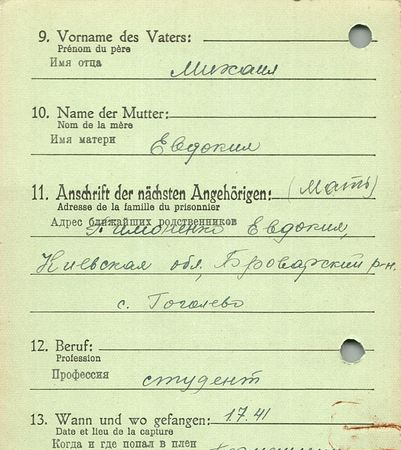 9. Vorname des Vaters:
Prénom du père
Имя отца
Михаил
10. Name der Mutter:
Nom de la mère
Имя матери
Евдокия
11. Anschrift der nächsten Angehörigen: (Мать)
Adresse de la famille du prisonnier
Адрес ближайших родственников
Евдокия,
Киевская обл, Броварский р-н.
с. Гоголево
12. Beruf:
Profession
Профессия
студент
13. Wann und wo gefangen: 1.7.41
Date et lieu de la capture
Когда и где попал в плен